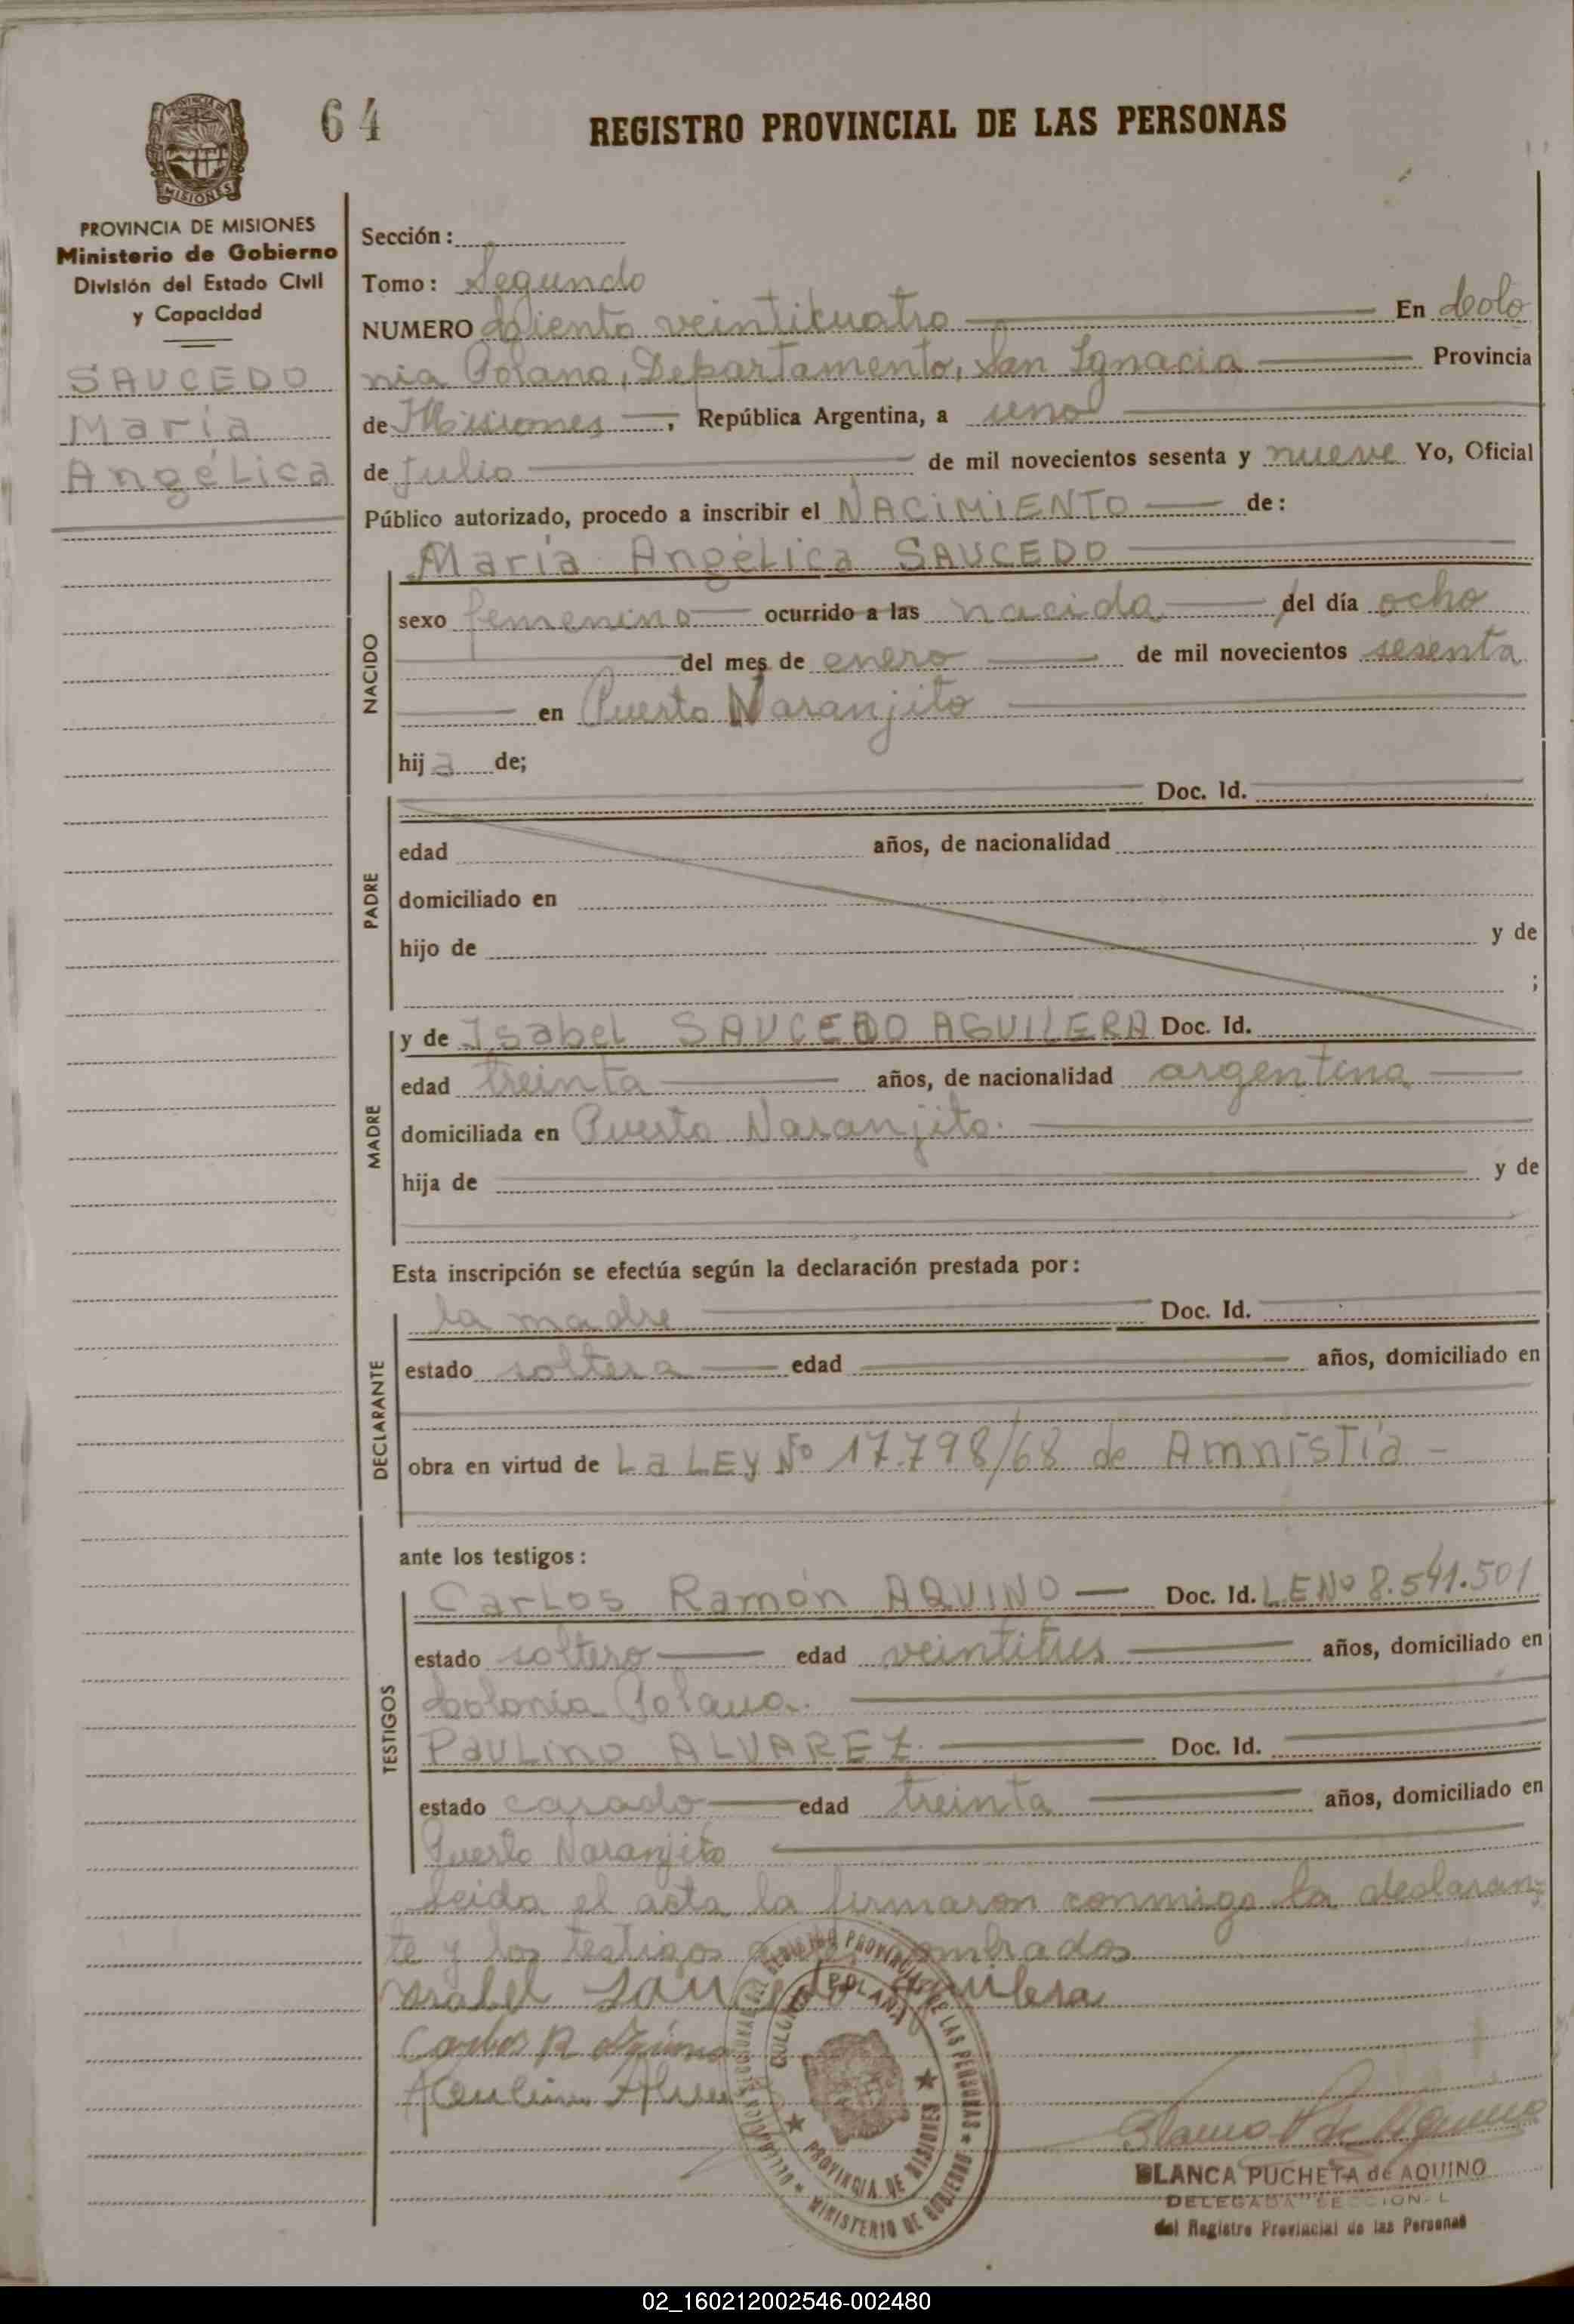 64
REGISTRO PROVINCIAL DE LAS PERSONAS
MISIONES
PROVINCIA DE MISIONES
Ministerio de Gobierno
División del Estado Civil
y Capacidad
SAUCEDO
María
Angélica
Sección:
Tomo: Segundo
NUMERO Ciento veinticuatro En Colo
nia Polana, Departamento, San Ignacio Provincia
de Misiones, República Argentina, a uno
de Julio de mil novecientos sesenta y nueve Yo, Oficial
Público autorizado, procedo a inscribir el NACIMIENTO de:
NACIDO
María Angélica SAUCEDO
sexo femenino ocurrido a las nacida del día ocho
del mes de enero de mil novecientos sesenta
en Puerto Naranjito
hija de;
PADRE
Doc. Id.
edad años, de nacionalidad
domiciliado en
hijo de y de
;
MADRE
y de Isabel SAUCEDO AGUILERA Doc. Id.
edad treinta años, de nacionalidad argentina
domiciliada en Puerto Naranjito.
hija de y de
Esta inscripción se efectúa según la declaración prestada por:
DECLARANTE
la madre Doc. Id.
estado soltera edad años, domiciliado en
obra en virtud de La LEY Nº 17.798/68 de Amnistía -
ante los testigos:
TESTIGOS
Carlos Ramón AQUINO Doc. Id. L.E.Nº 8.541.501
estado soltero edad veintitres años, domiciliado en
Colonia Polana.
Paulino ALVAREZ. Doc. Id.
estado casado edad treinta años, domiciliado en
Puerto Naranjito
Leida el acta la firmaron conmigo la declaran-
te y los testigos nombrados
Isabel Saucedo Aguilera
Carlos R Aquino
COLONIA POLANA
PROVINCIA DE MISIONES
MINISTERIO DE GOBIERNO
BLANCA PUCHETA de AQUINO
DELEGADA SECCIONAL
del Registro Provincial de las Personas
02_160212002546-002480